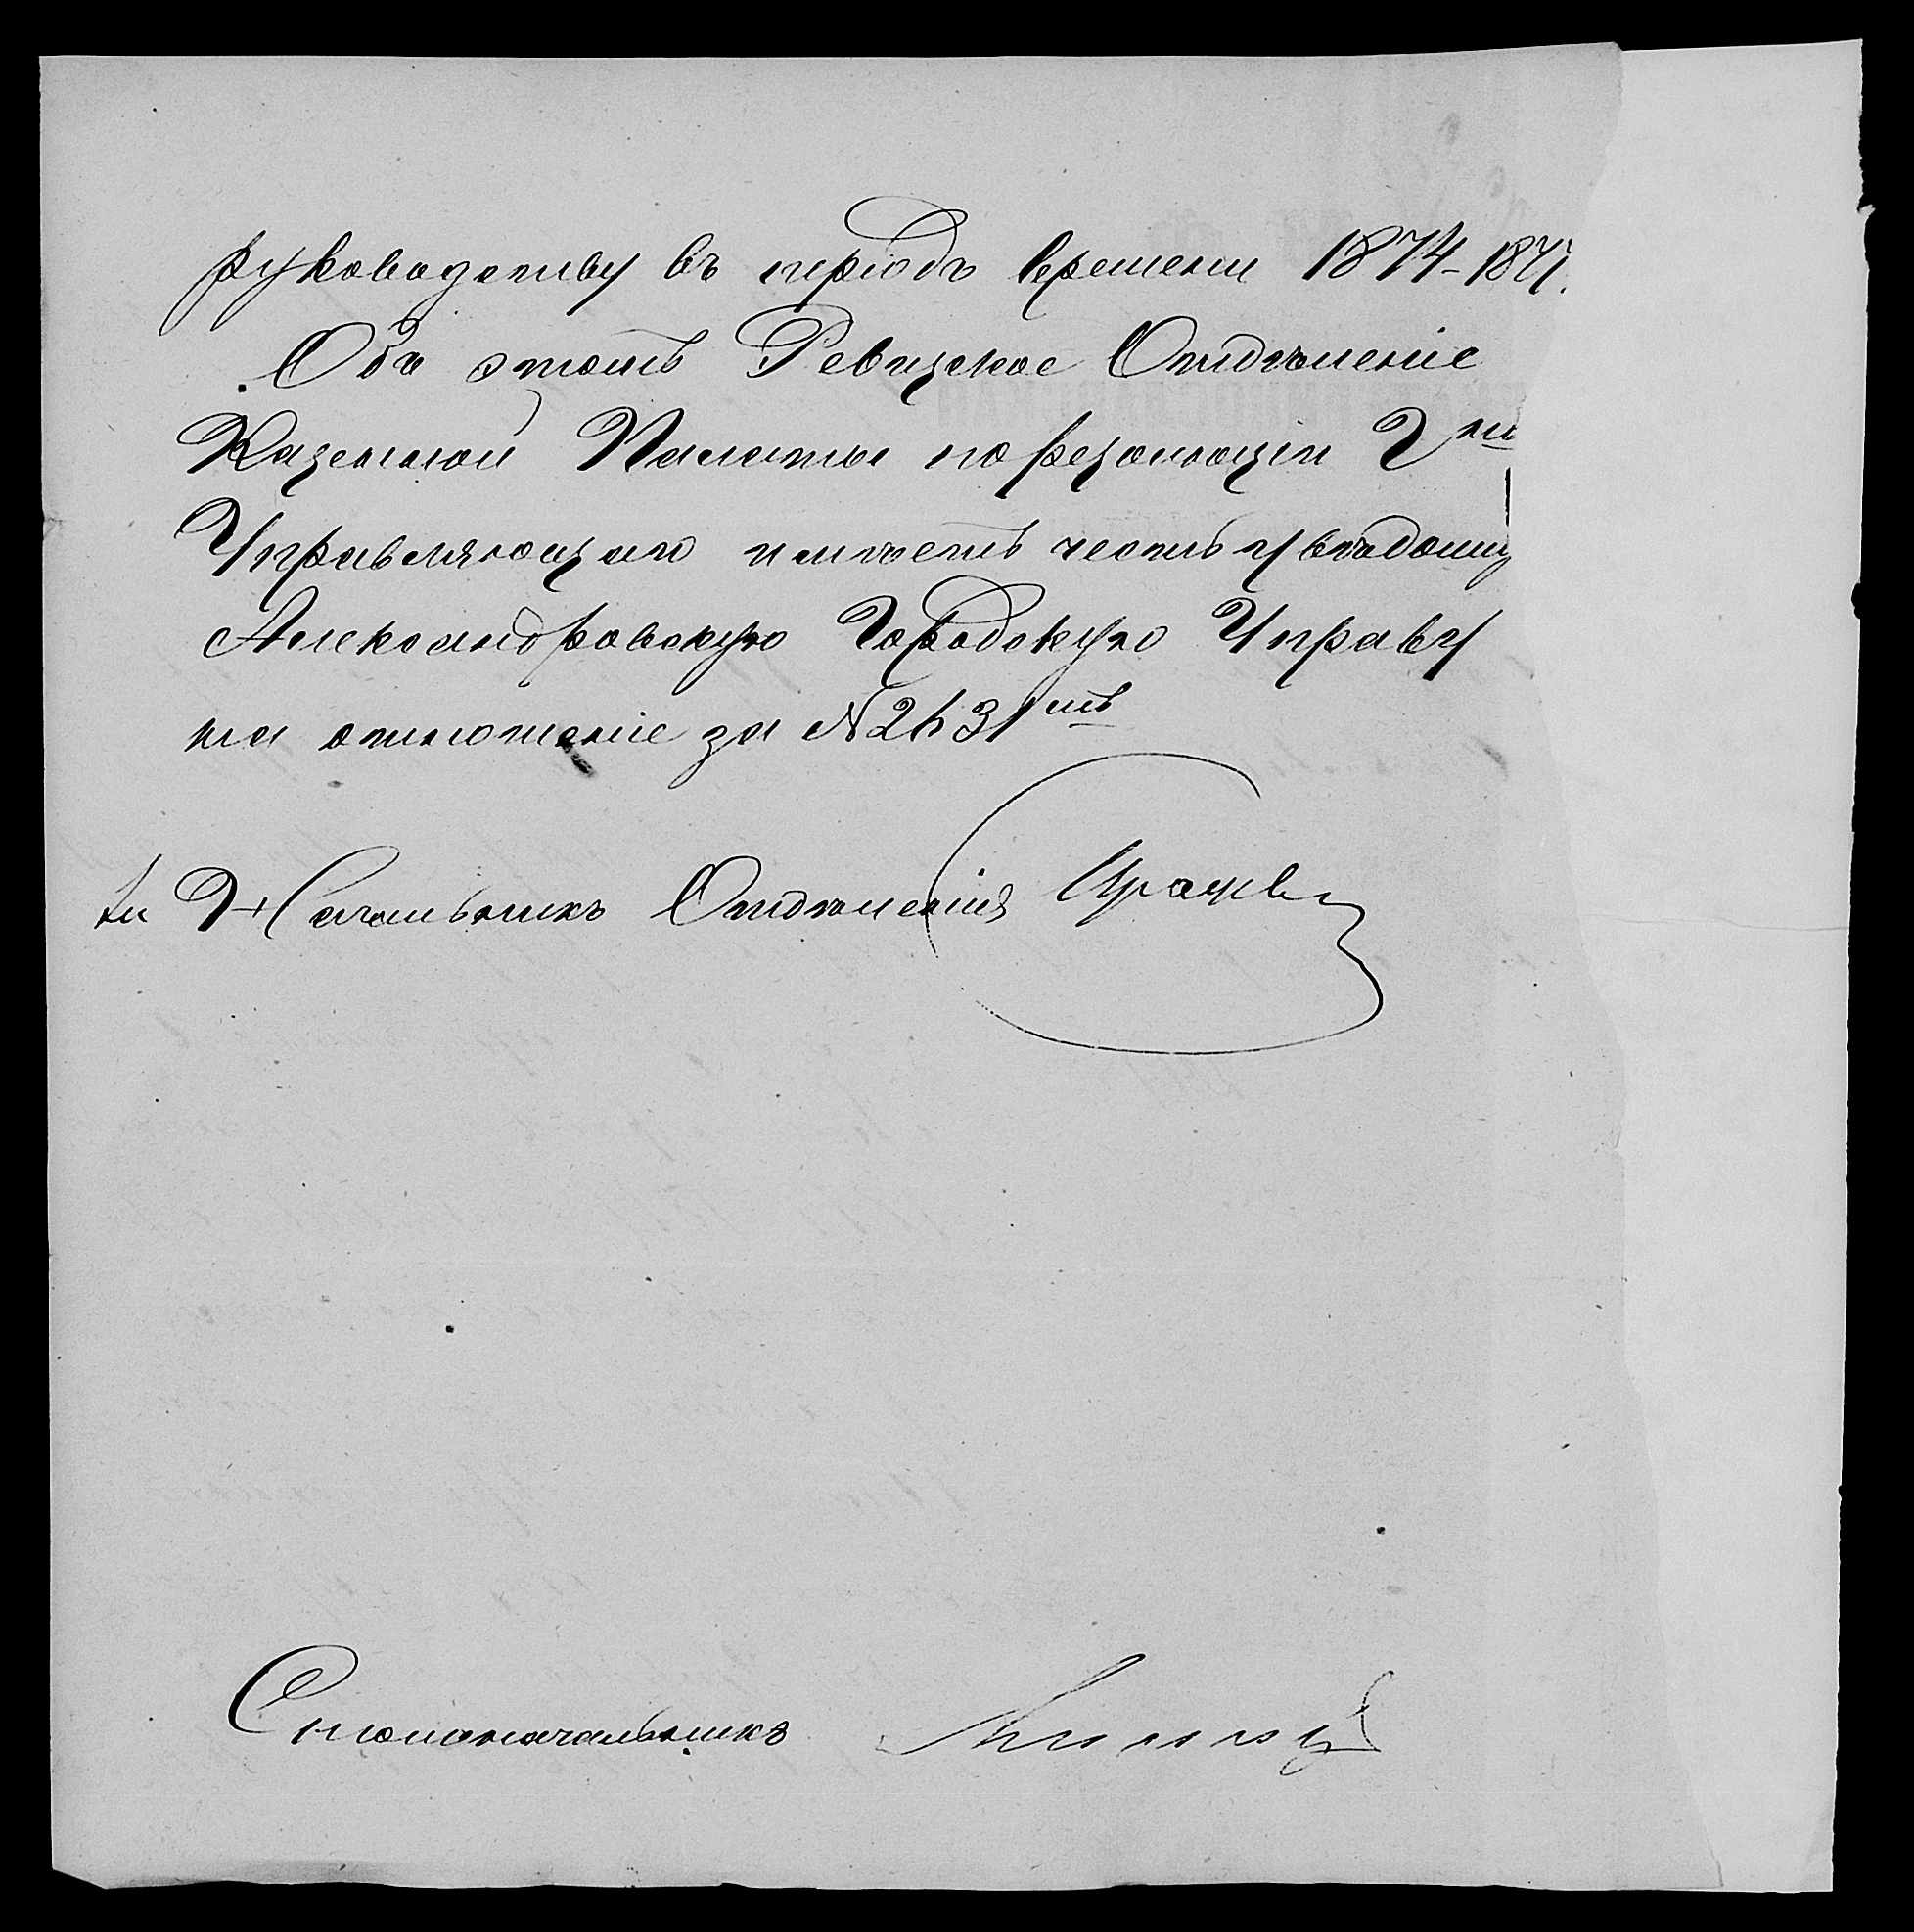 руководству въ періодъ времени 1874-1877.
Объ этомъ Ревизское Отдѣленіе
Казенной Палаты по резолюціи Г.на
Управляющаго имѣетъ честь увѣдомить
Александровскую Городскую Управу
на отношеніе за №2631мъ
Начальникъ Отдѣленія
Столоначальникъ